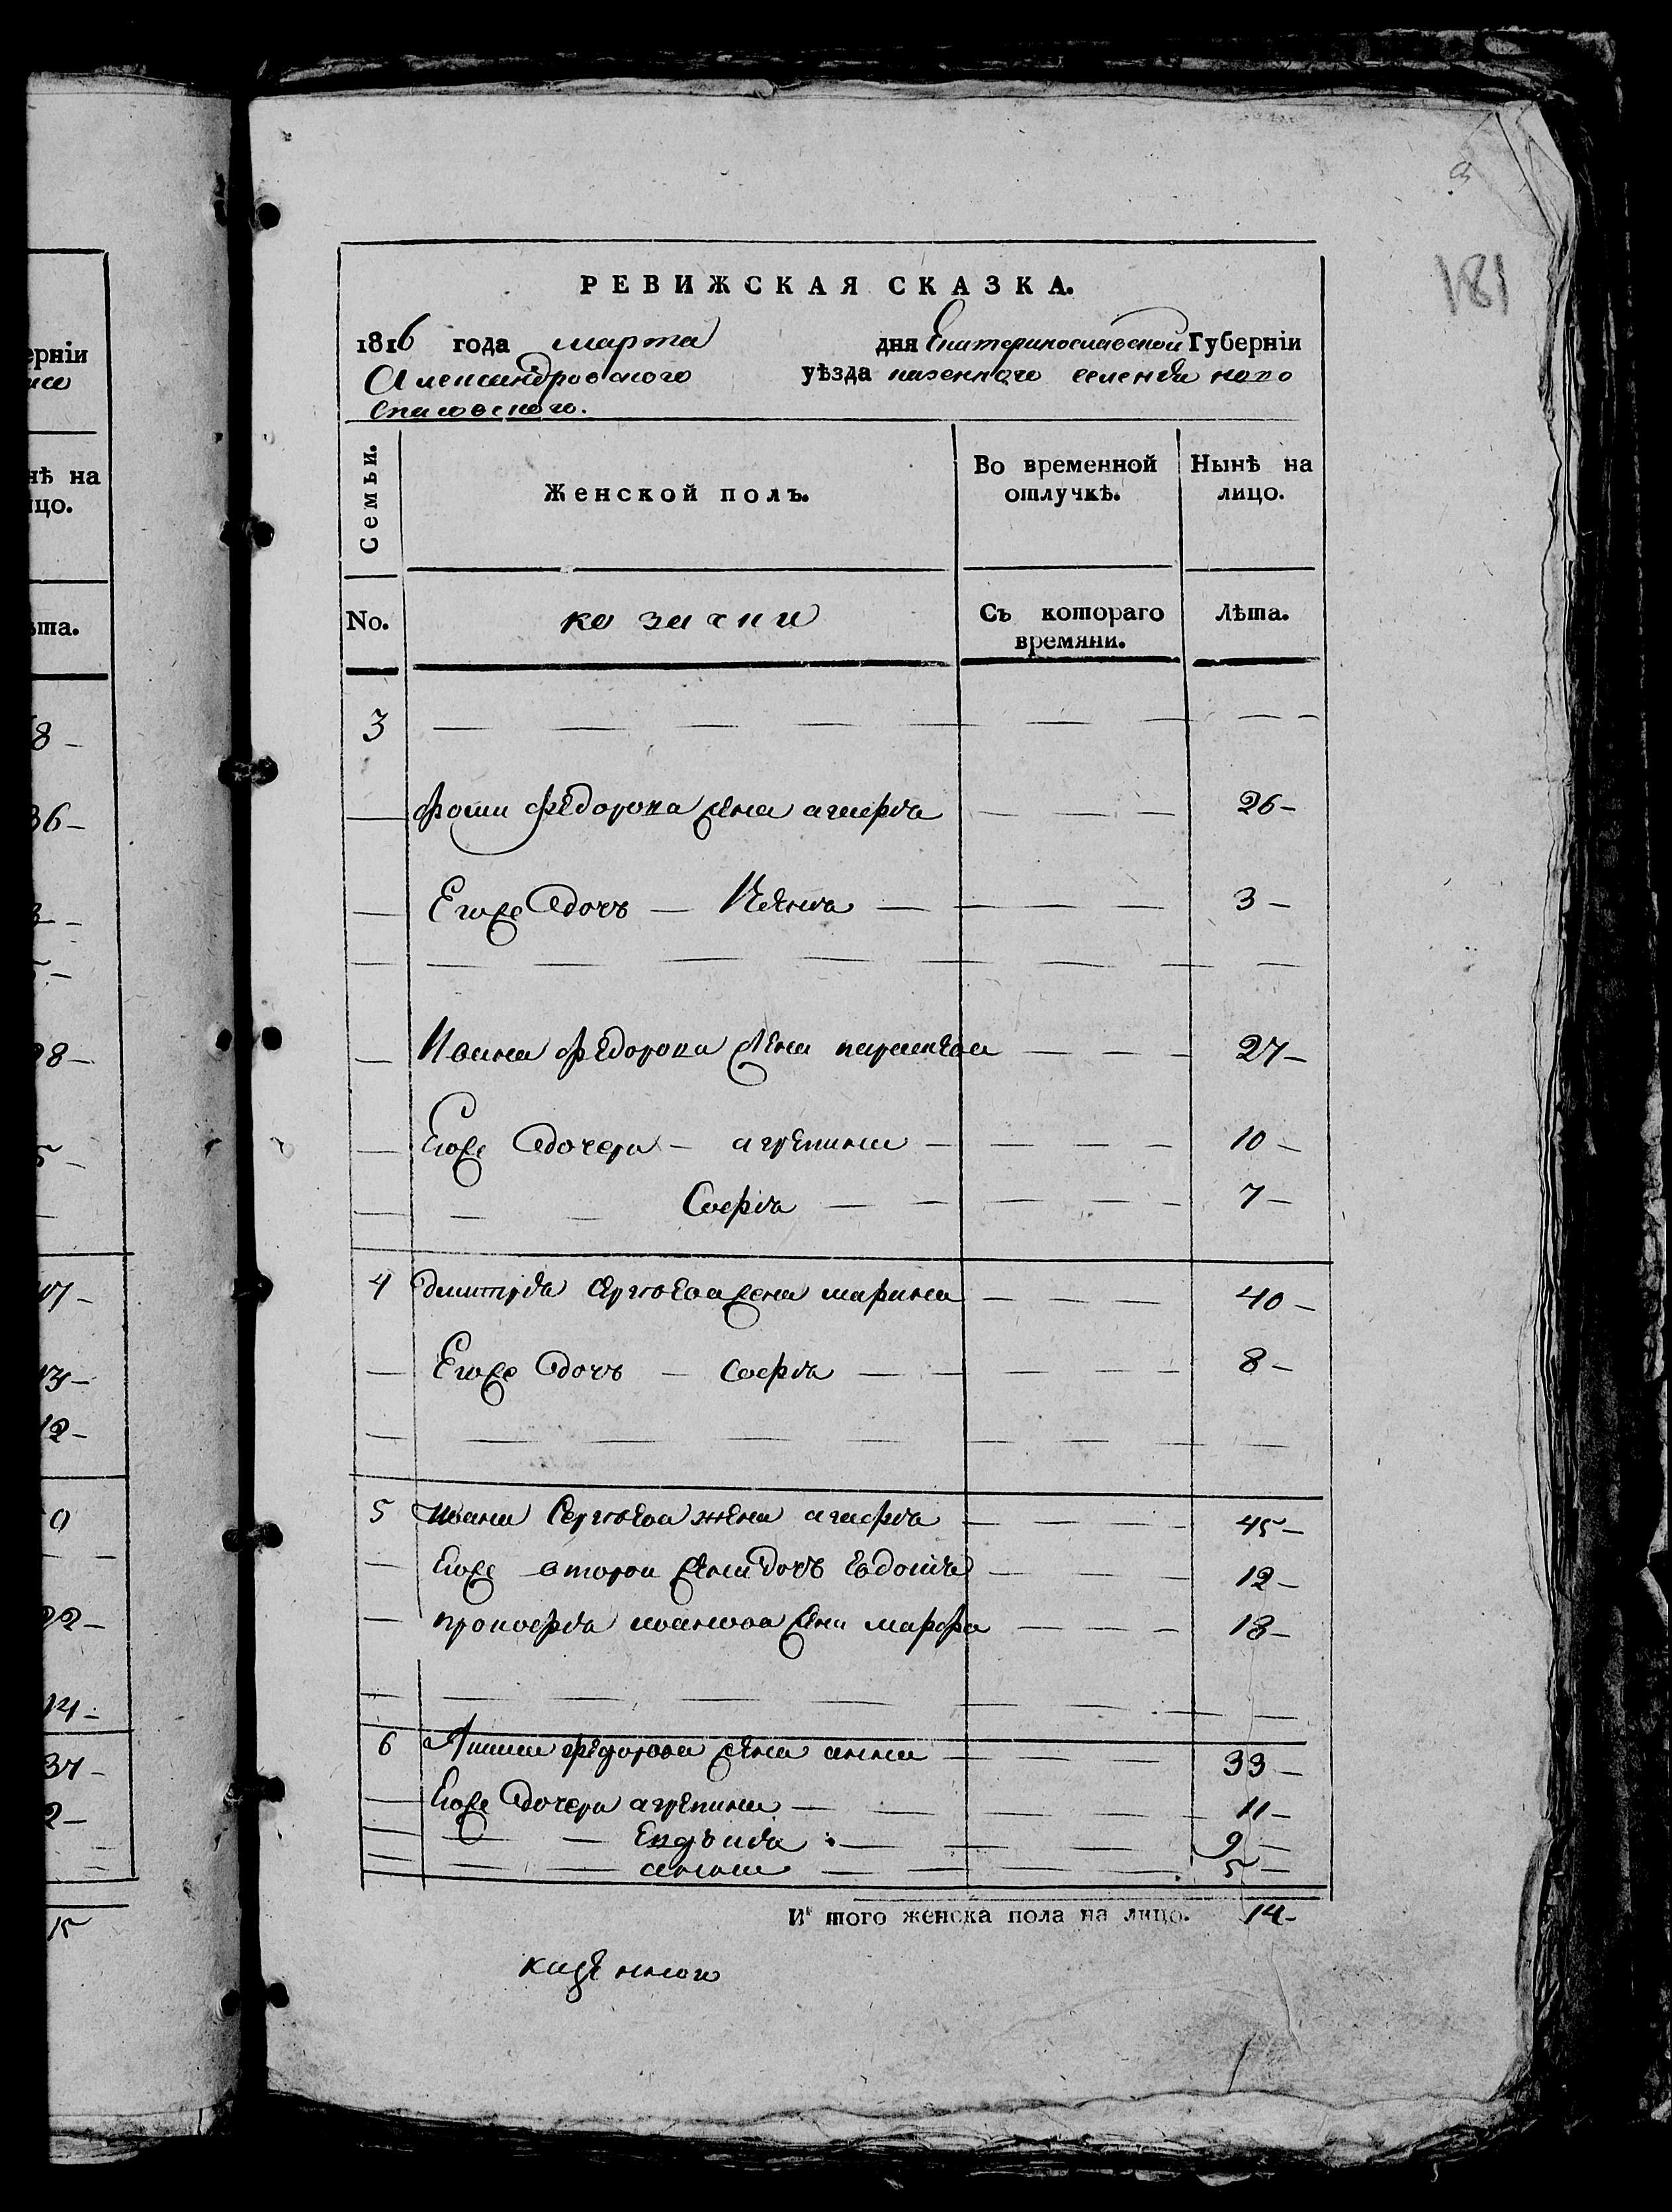 ерніи
нѣ на
цо.
ѣта.
8 –
36 –
28 –
5 –
17 –
13 –
12 –
22 –
14 –
37 –
2 –
15
181
РЕВИЖСКАЯ СКАЗКА.
1816 года марта дня Екатеринославской Губерніи
Александровского уѣзда казенного селения ново
спасовского.
Семьи. Женской полъ. Во временной отлучкѣ. Нынѣ на лицо.
No. козачки Съ котораго времяни. Лѣта.
3 — — — — — — — —
фоми федорова жена агафия — — — 26 –
Егоже дочь — — — — — 3 –
Ивана федорова жена параскева — — — 27 –
Егоже дочери – агрепина — — — — 10 –
— — София — — — — — 7 –
4 дмитрия сергѣева жена марина — — — 40 –
Егоже дочь — софия — — — — — 8 –
5 ивана Сергѣева жена агафия — — — — 45 –
Егоже второй жени дочъ Евдокия — — — 12 –
прокофия иванова жена марфа — — — 18 –
6 федорова жена анна — — — — 33 –
Егоже дочери агрепина — — — — — 11 –
— — — — — — 9 –
— — анна — — — — 5 –
И того женска пола на лицо. 14 –
казенного